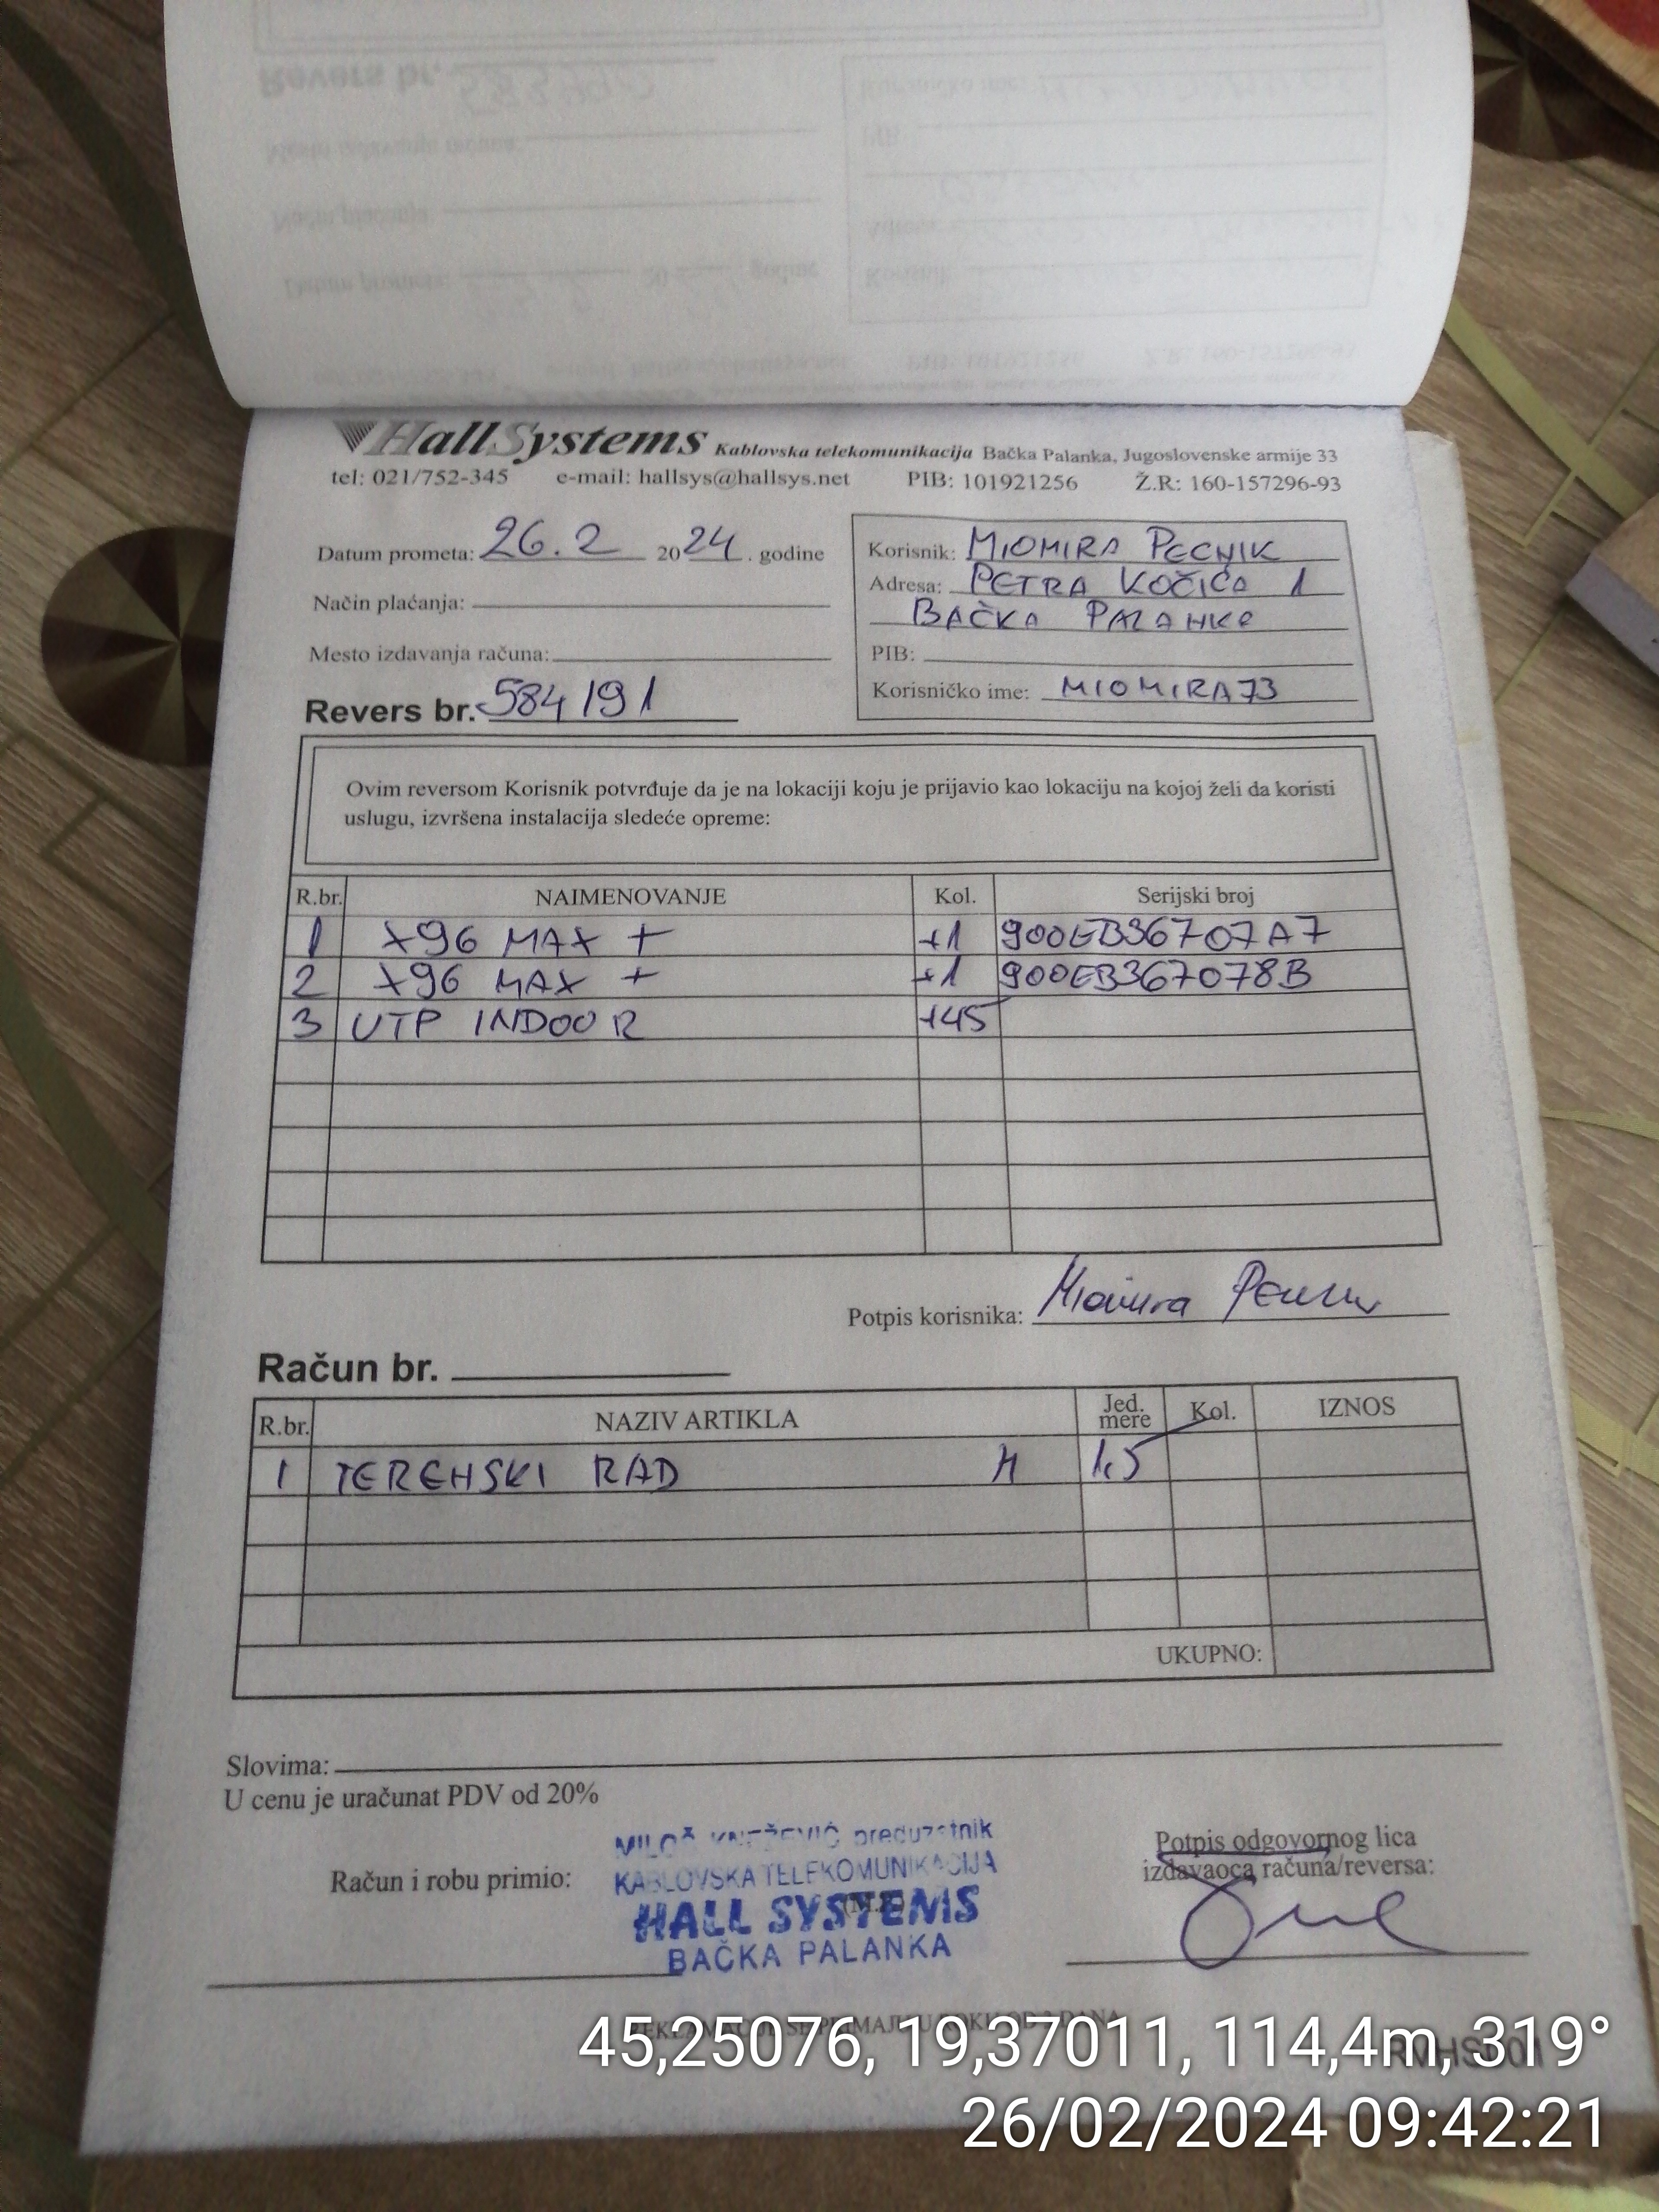 HallSystems Kablovska telekomunikacija Bačka Palanka, Jugoslovenske armije 33
tel: 021/752-345 e-mail: hallsys@hallsys.net PIB: 101921256 Ž.R: 160-157296-93
Datum prometa: 26.2 2024. godine
Način plaćanja:
Mesto izdavanja računa:
Revers br. 584191
Korisnik: MIOMIRA PECNIK
Adresa: PETRA KOČIĆA 1
BAČKA PALANKA
PIB:
Korisničko ime: MIOMIRA73
Ovim reversom Korisnik potvrđuje da je na lokaciji koju je prijavio kao lokaciju na kojoj želi da koristi
uslugu, izvršena instalacija sledeće opreme:
R.br. NAIMENOVANJE Kol. Serijski broj
1 X96 MAX + +1 900EB36707A7
2 X96 MAX + +1 900EB367078B
3 UTP INDOOR +45
Potpis korisnika: Miomira
Račun br.
R.br. NAZIV ARTIKLA Jed. mere Kol. IZNOS
1 TERENSKI RAD H 1,5
UKUPNO:
Slovima:
U cenu je uračunat PDV od 20%
Račun i robu primio:
MILOŠ KNEŽEVIĆ preduzetnik
KABLOVSKA TELEKOMUNIKACIJA
HALL SYSTEMS
BAČKA PALANKA
Potpis odgovornog lica
izdavaoca računa/reversa:
45,25076, 19,37011, 114,4m, 319°
26/02/2024 09:42:21